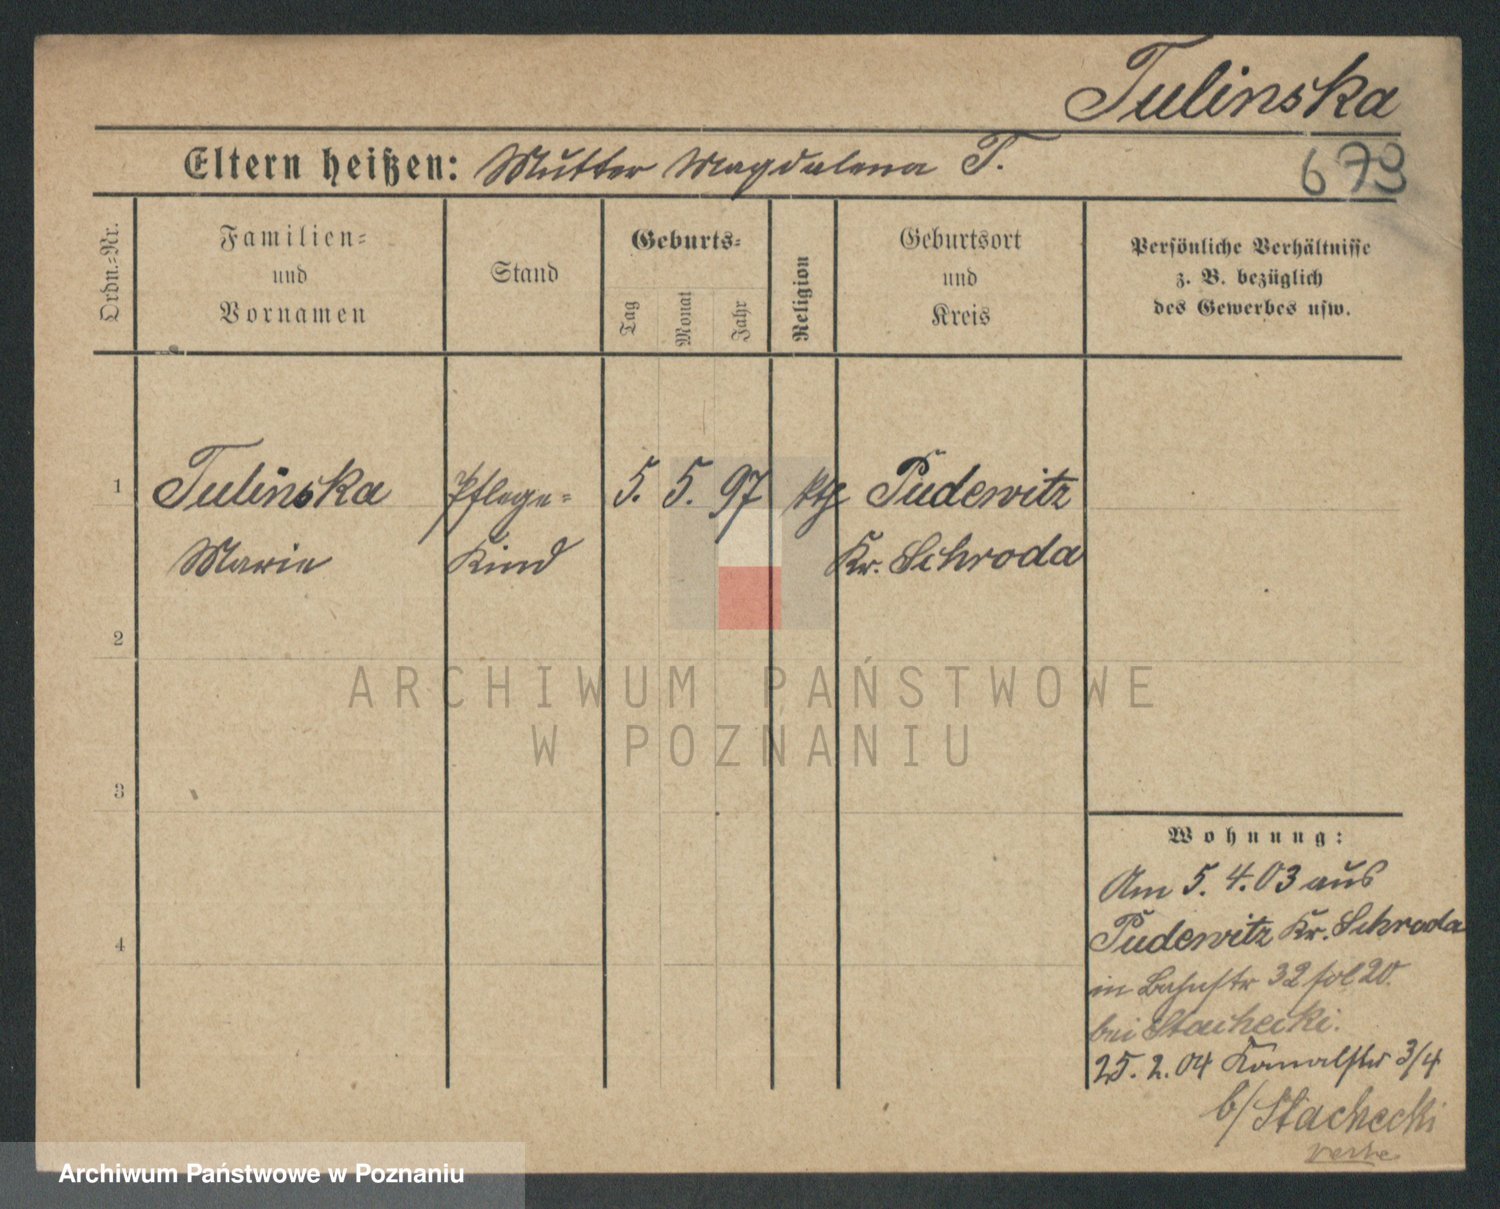 Tulinska
Eltern heißen: Mutter Magdalena T.
673
Ordn.=Nr.
Familien=
und
Vornamen
Stand
Geburts=
Tag
Monat
Jahr
Religion
Geburtsort
und
Kreis
Persönliche Verhältnisse
z. B. bezüglich
des Gewerbes usw.
1 Tulinska Pflege= 5. 5. 97 kth Pudewitz
Marie Kind Kr. Schroda
2
3
4
Wohnung:
Am 5. 4. 03 aus
Pudewitz Kr. Schroda
in Bahnstr 32 fol 20.
bei Stachecki.
25. 2. 04 Kanalstr 3/4
b/ Stachecki
ARCHIWUM PAŃSTWOWE
W POZNANIU
Archiwum Państwowe w Poznaniu